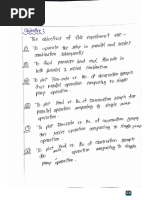 Objectives :
The objectives of this experiment are -
To operate the pump in parallel and series
combination subsequently
To find pressure head and flow rate in
both parallel & series combination.
To plot flow-rate vs No. of observation graphs
that parallel operation comparing to single
pump operation.
To plot head vs No. of observation graphs for
parallel operation comparing to single pump
operation.
To plot flow-rate vs No. of observation graphs
for series operation comparing to single
pump operation.
To plot head vs. No. of observation graphs
for series operation comparing to single
pump operation.